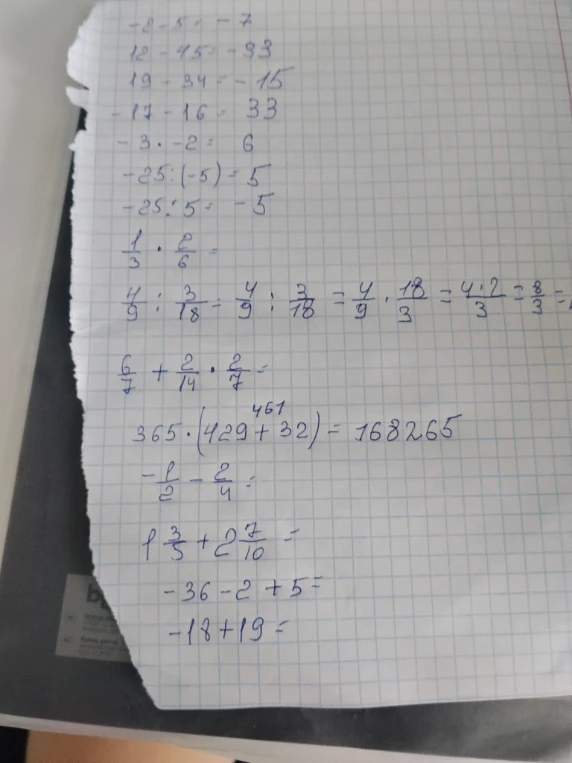 -2-5=-7
12-45=-33
19-34=-15
-17-16= 33
-3·-2= 6
-25:(-5)=5
-25:5= -5
1/3 · 2/6 =
4/9 : 3/18 = 4/9 : 3/18 = 4/9 · 18/3 = 4·2/3 = 8/3 =
6/7 + 2/14 · 2/7 =
461
365·(429+32)= 168265
-1/2 - 2/4 =
1 3/5 + 2 7/10 =
-36-2+5=
-18+19=